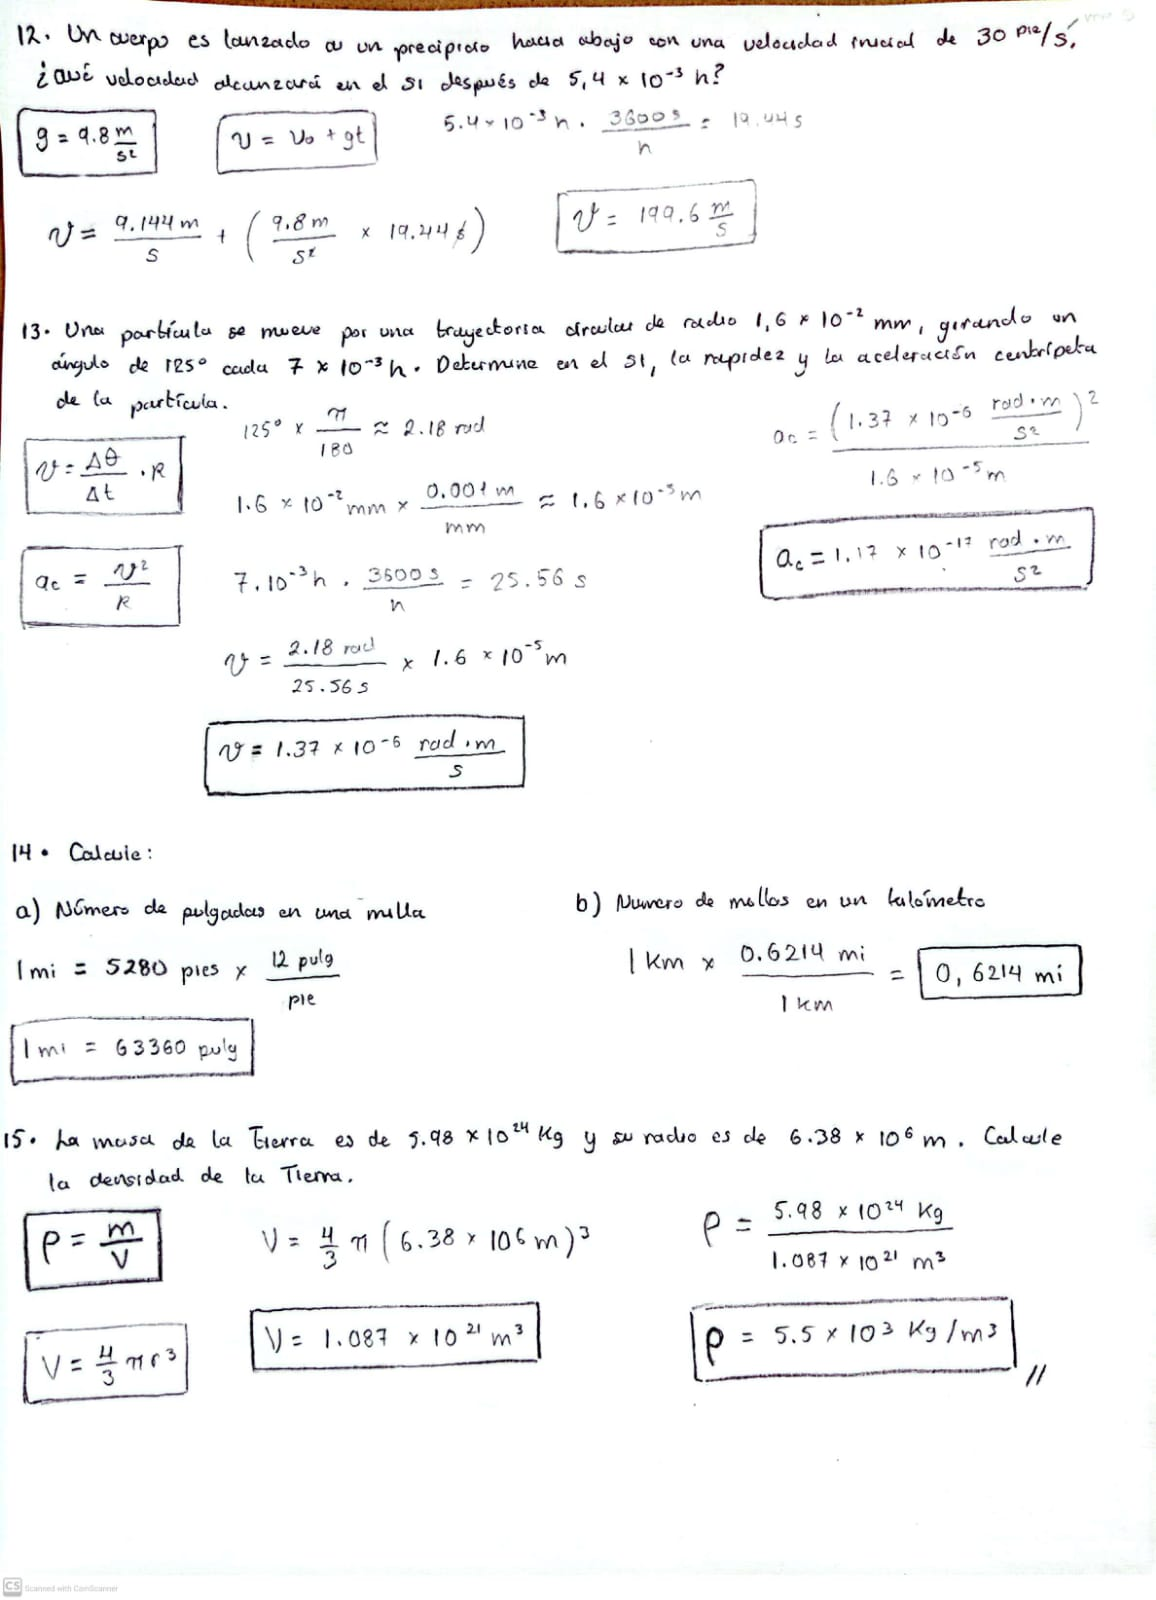 12. Un cuerpo es lanzado a un precipicio hacia abajo con una velocidad inicial de 30 pie/s.
¿Qué velocidad alcanzará en el SI después de 5,4 × 10⁻³ h?
g = 9.8 m/s²
v = v₀ + gt
5.4 × 10⁻³ h · 3600 s / h = 19.44 s
v = 9.144 m / s + (9.8 m / s² × 19.44 s)
v = 199.6 m/s
13. Una partícula se mueve por una trayectoria circular de radio 1,6 × 10⁻² mm, girando un
ángulo de 125° cada 7 × 10⁻³ h. Determine en el SI, la rapidez y la aceleración centrípeta
de la partícula.
v = Δθ / Δt · R
125° × π / 180 ≈ 2.18 rad
1.6 × 10⁻² mm × 0.001 m / mm ≈ 1.6 × 10⁻⁵ m
ac = v² / R
7.10⁻³ h · 3600 s / h = 25.56 s
v = 2.18 rad / 25.56 s × 1.6 × 10⁻⁵ m
v = 1.37 × 10⁻⁶ rad · m / s
ac = (1.37 × 10⁻⁶ rad · m / s²)² / 1.6 × 10⁻⁵ m
ac = 1.17 × 10⁻¹⁷ rad · m / s²
14. Calcule:
a) Número de pulgadas en una milla
1 mi = 5280 pies × 12 pulg / pie
1 mi = 63360 pulg
b) Numero de millas en un kilómetro
1 Km × 0.6214 mi / 1 km = 0,6214 mi
15. La masa de la Tierra es de 5.98 × 10²⁴ Kg y su radio es de 6.38 × 10⁶ m. Calcule
la densidad de la Tierra.
ρ = m / V
V = 4/3 π r³
V = 4/3 π (6.38 × 10⁶ m)³
V = 1.087 × 10²¹ m³
ρ = 5.98 × 10²⁴ Kg / 1.087 × 10²¹ m³
ρ = 5.5 × 10³ Kg/m³ //
CS Scanned with CamScanner